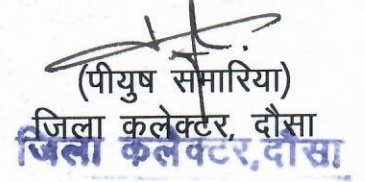 (पीयुष समारिया)
जिला कलेक्टर, दौसा
जिला कलेक्टर, दौसा